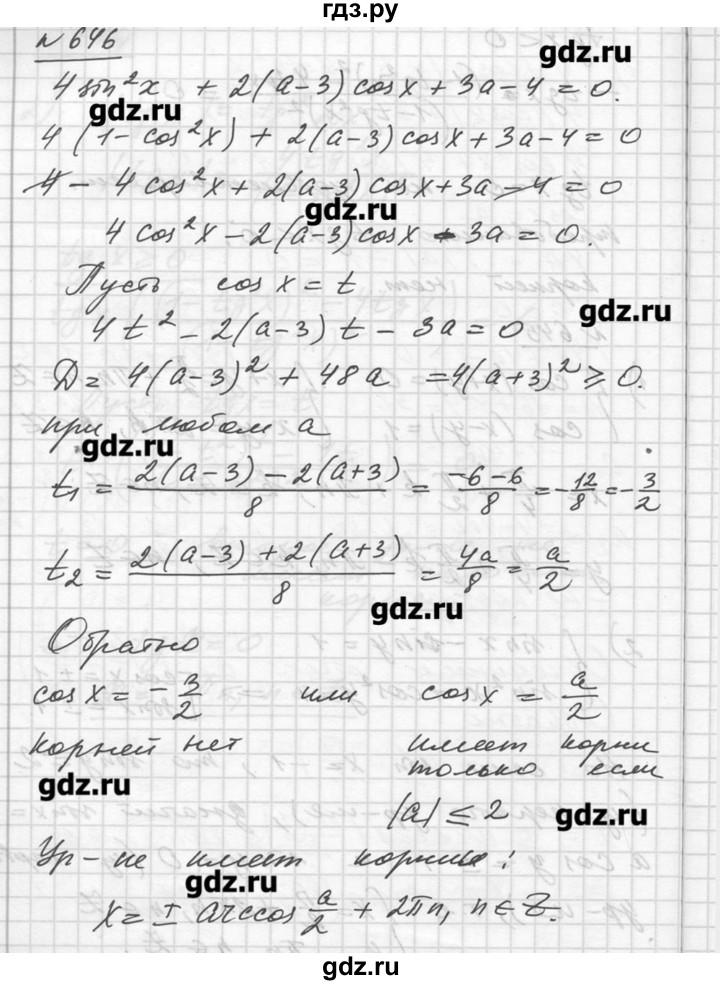 гдз.ру
№ 646
gdz.ru
4 sin²x + 2(a-3) cosx + 3a - 4 = 0.
gdz.ru
4 (1 - cos²x) + 2(a-3) cosx + 3a - 4 = 0
4 - 4 cos²x + 2(a-3) cosx + 3a - 4 = 0
gdz.ru
4 cos²x - 2(a-3) cosx - 3a = 0.
Пусть cos x = t
gdz.ru
4t² - 2(a-3) t - 3a = 0
D = 4(a-3)² + 48a = 4(a+3)² ≥ 0.
при любом a
gdz.ru
t₁ = (2(a-3) - 2(a+3))/8 = (-6-6)/8 = -12/8 = -3/2
t₂ = (2(a-3) + 2(a+3))/8 = 4a/8 = a/2
gdz.ru
Обратно
cosx = -3/2 или cosx = a/2
корней нет имеет корни
только если
gdz.ru
|a| ≤ 2
gdz.ru
Ур-ие имеет корни:
gdz.ru
x = ± arccos a/2 + 2πn, n ∈ Z.
gdz.ru